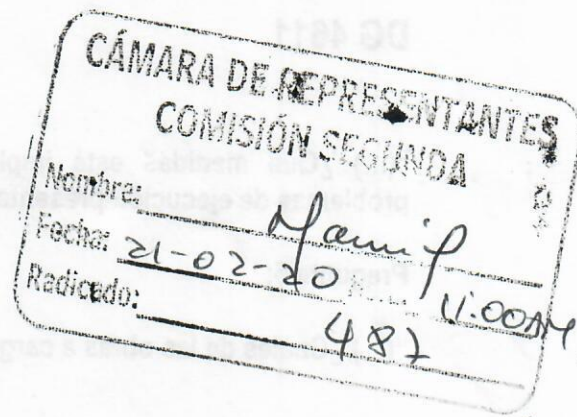 CÁMARA DE REPRESENTANTES
COMISIÓN SEGUNDA
Nombre:
Fecha: 21-02-20 11:00AM
Radicado: 487